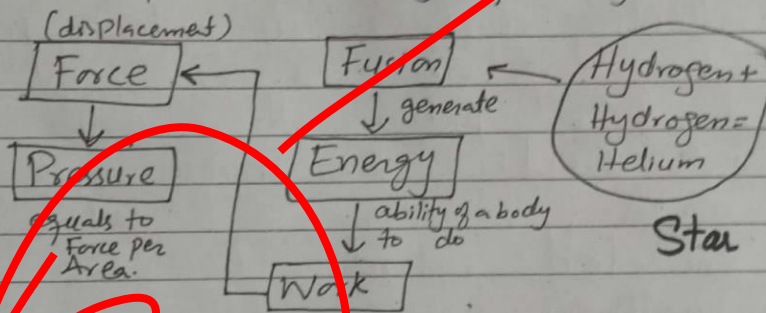 (displacement)
Force
Pressure
equals to
Force per
Area.
Fusion
generate
Energy
ability of a body
to do
Work
Hydrogen +
Hydrogen =
Helium
Star